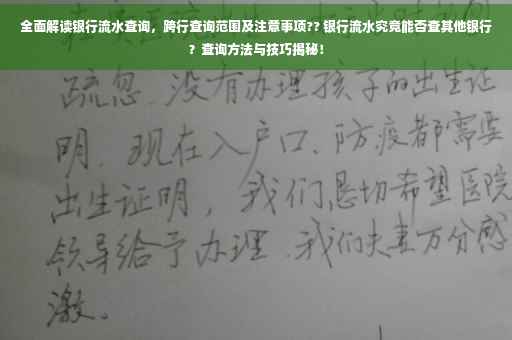 全面解读银行流水查询，跨行查询范围及注意事项?? 银行流水究竟能否查其他银行
？查询方法与技巧揭秘！
疏忽，没有办理孩子的出生证
明．现在入户口、防疫都需要
出生证明，我们恳切希望医院
领导给予办理．我们夫妻万分感
激．